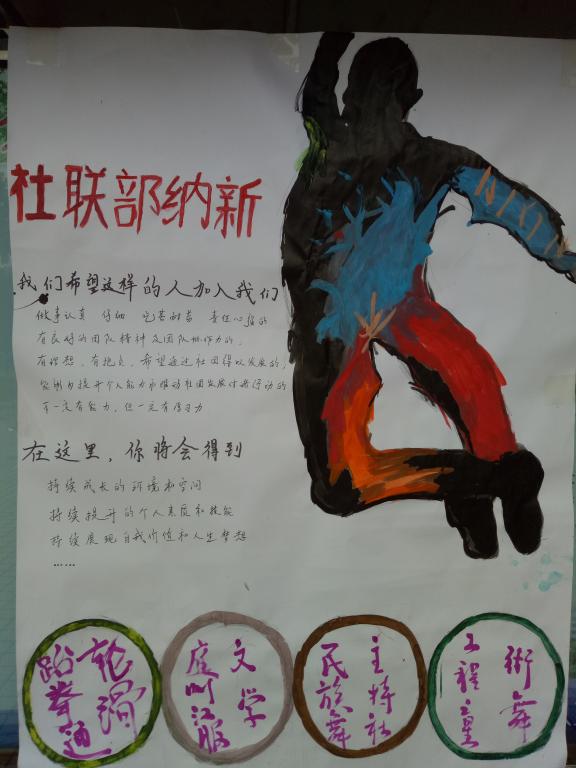 社联部纳新
我们希望这样的人加入我们
做事认真 仔细 吃苦耐劳 责任心强的
有良好的团队精神及团队协作力的,
有理想,有抱负,希望通过社团得以发展的,
能够为提升个人能力和推动社团发展付诸行动的
不一定有能力,但一定有学习力
在这里,你将会得到
持续成长的环境和空间
持续提升的个人素质和技能
持续展现自我价值和人生梦想
……
轮滑
跆拳道
文学
主持社
民族舞
街舞